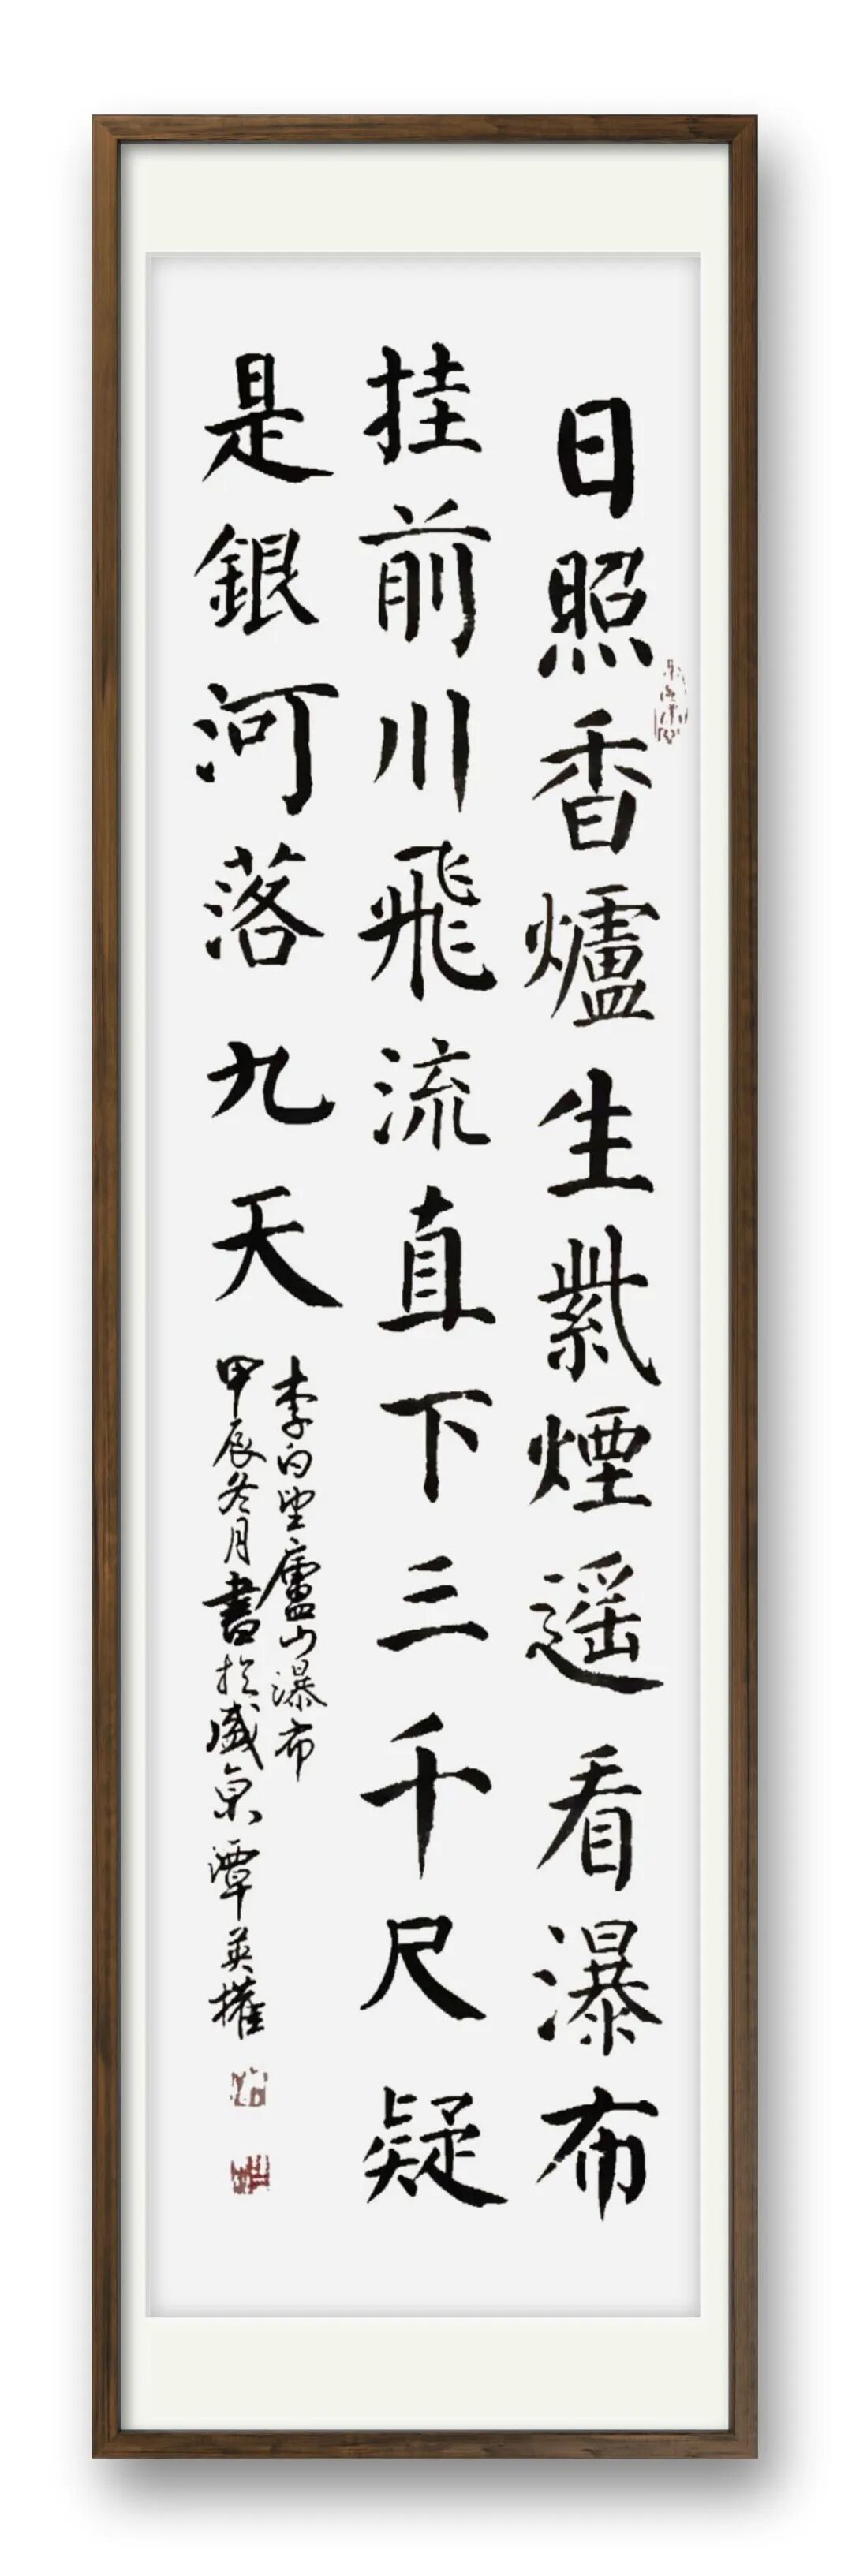 日照香爐生紫煙遥看瀑布
挂前川飛流直下三千尺疑
是銀河落九天
李白望廬山瀑布
甲辰冬月書於盛京譚英權